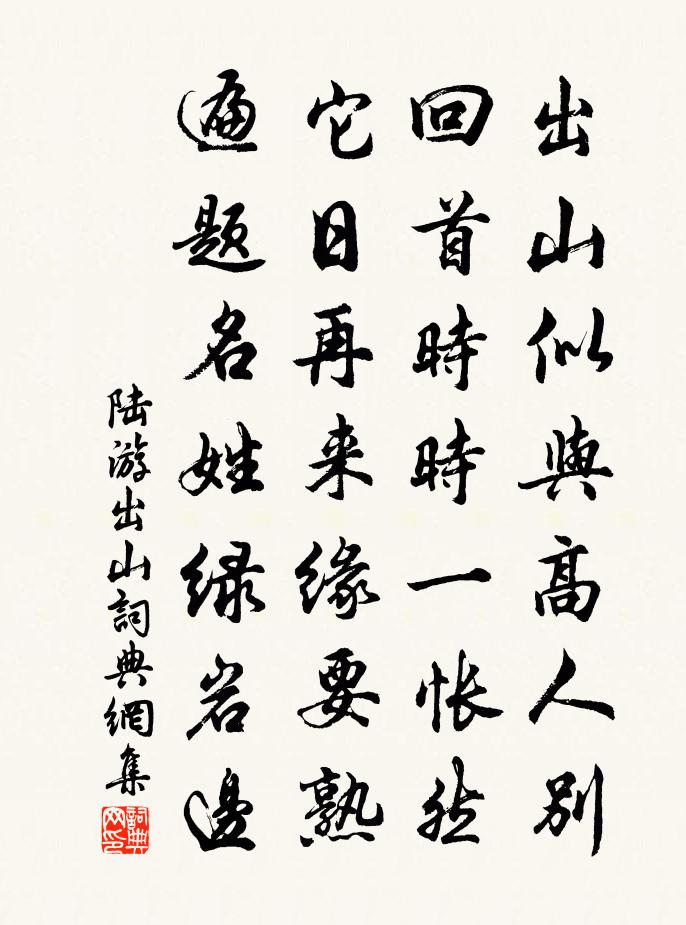 出山似與高人別
回首時時一悵然
它日再来緣要熟
遍题名姓绿岩邊
陆游出山詞典網集
詞典网印